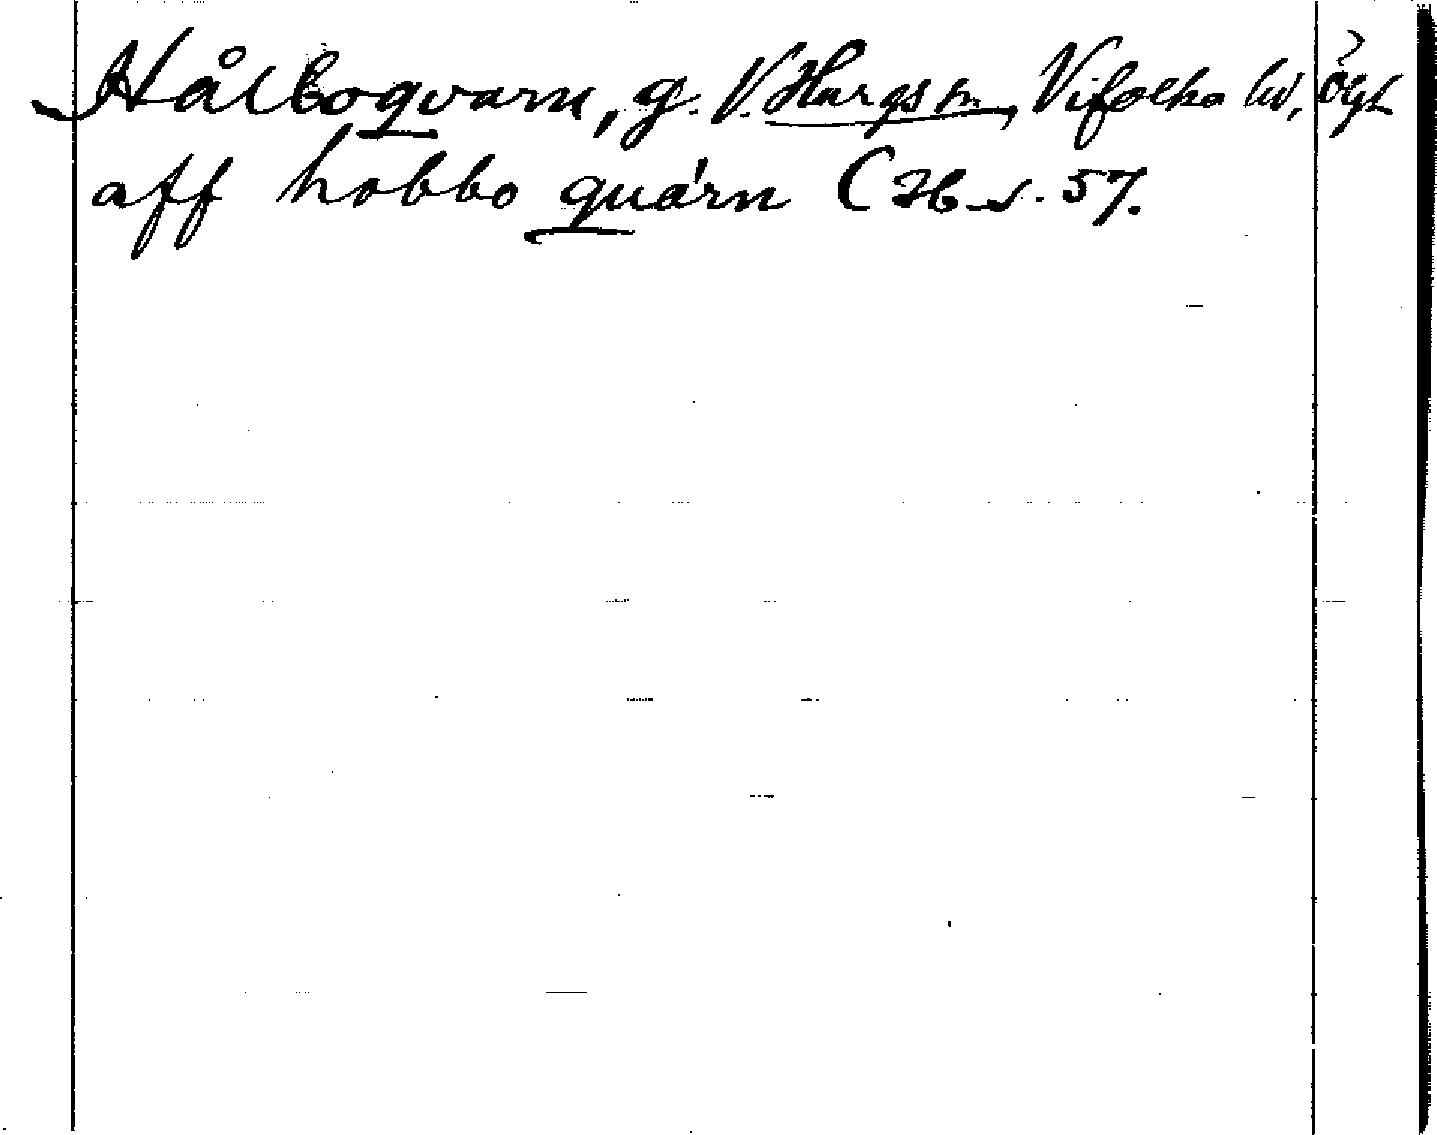 Hålboqvarn, g. V. Hargs sn, Vifolka hd, Ögl.
aff hobbo quárn (Hb s. 57.